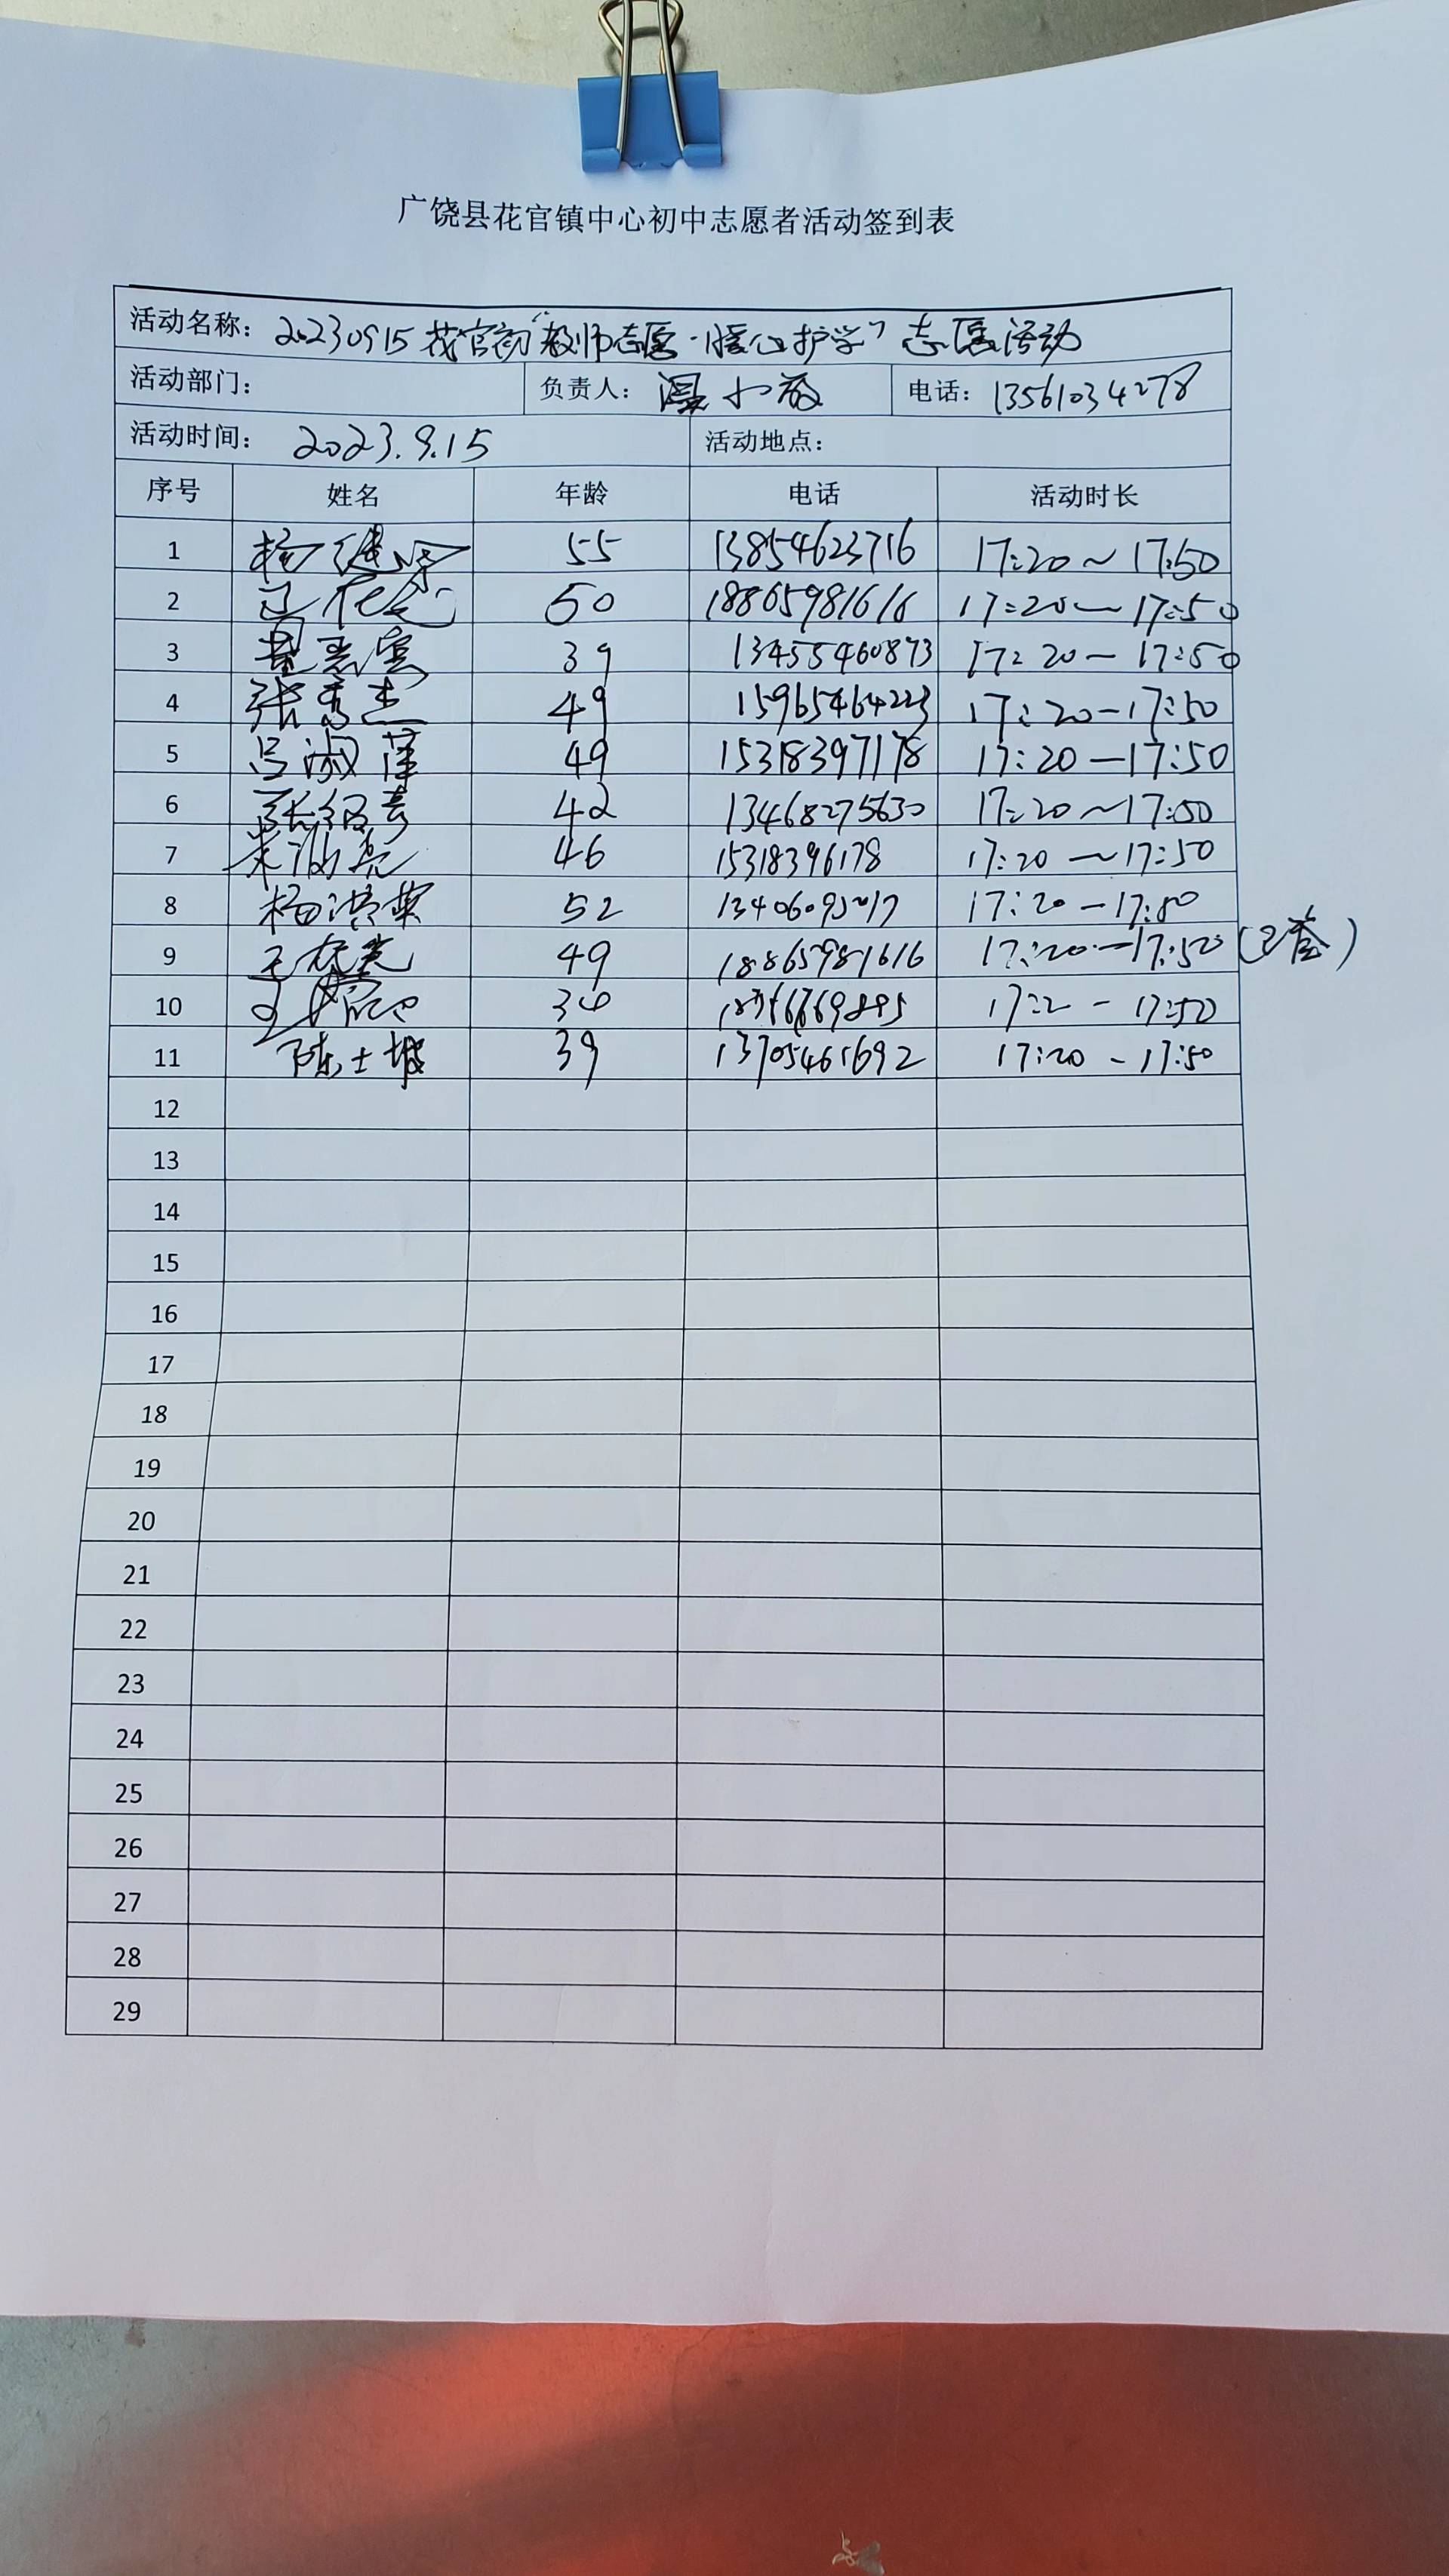 广饶县花官镇中心初中志愿者活动签到表
活动名称：20230915花官初“教师志愿·暖心护学”志愿活动
活动部门： 负责人： 电话：13561034278
活动时间：2023.9.15 活动地点：
序号 姓名 年龄 电话 活动时长
1 杨 55 13854623716 17:20～17:50
2 50 18865981616 17:20—17:50
3 39 13455460873 17:20—17:50
4 张秀杰 49 15965464223 17:20—17:50
5 吕淑萍 49 15318397178 17:20—17:50
6 42 13468275630 17:20～17:50
7 46 15318396178 17:20～17:50
8 杨洪 52 17:20—17:50
9 王 49 18865981616 17:20—17:50
10 17:2 - 17:50
11 陈士 39 13705461692 17:20 - 17:50
12
13
14
15
16
17
18
19
20
21
22
23
24
25
26
27
28
29